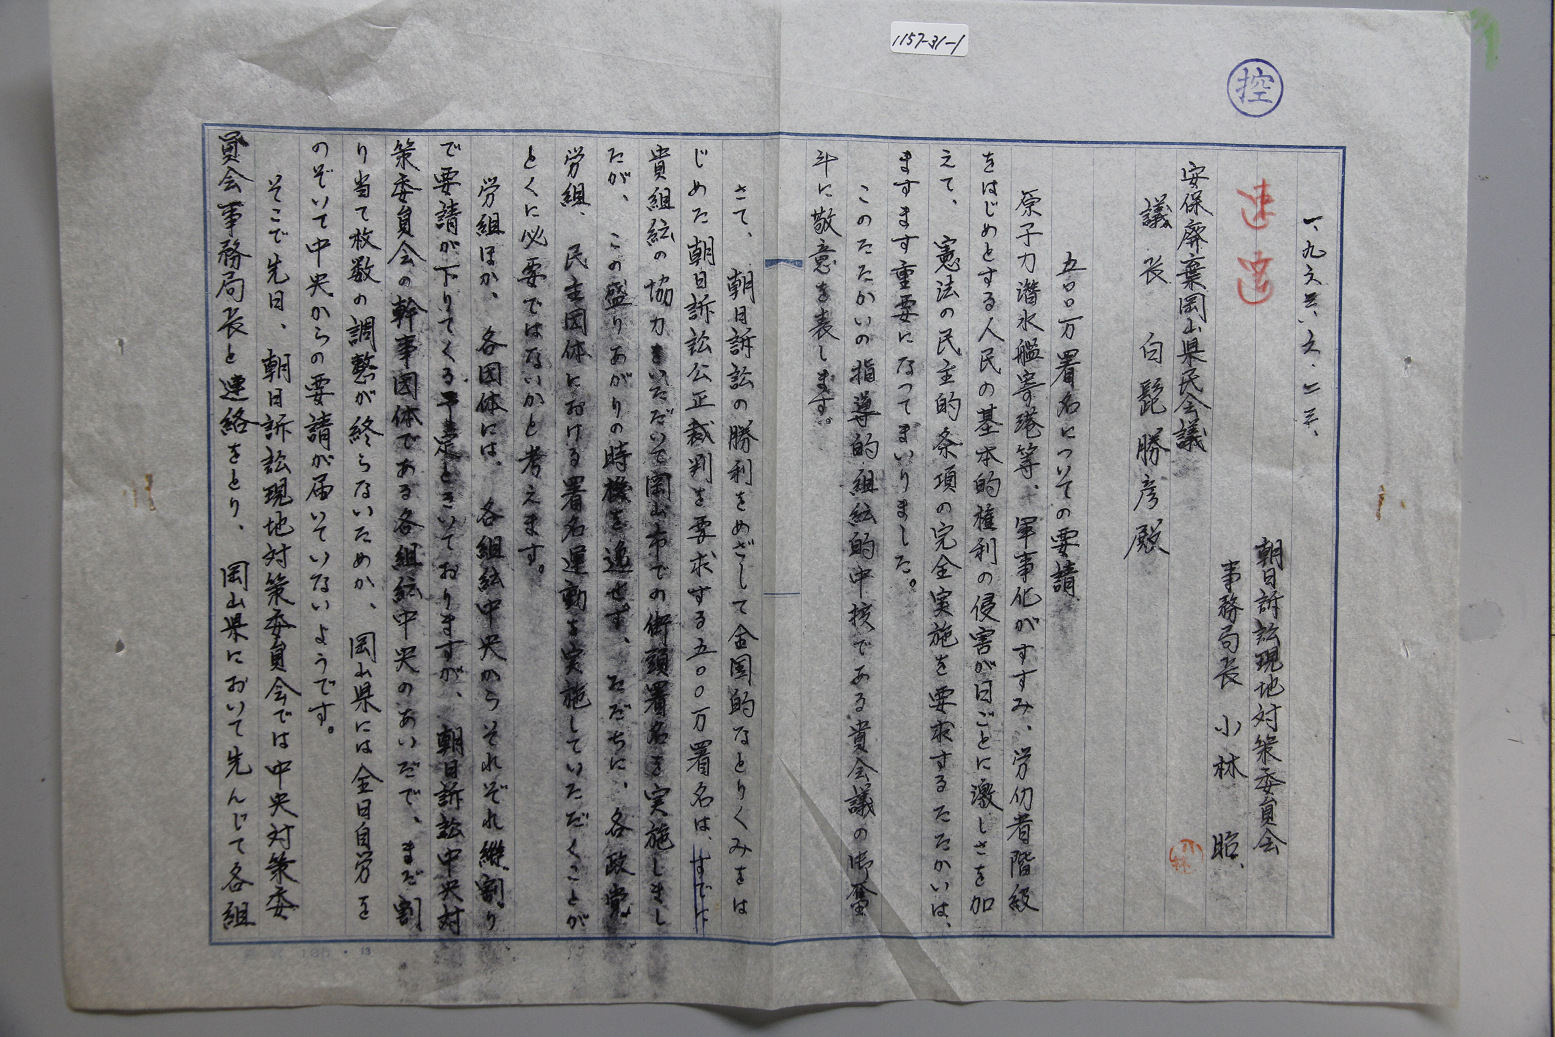 1157-31-1
控
一、九六五、五、二三、
朝日訴訟現地対策委員会
速達
事務局長 小林 昭
安保廃棄岡山県民会議
議長 白髭勝彦殿
五〇〇万署名についての要請
原子力潜水艦寄港等、軍事化がすすみ、労仂者階級
をはじめとする人民の基本的権利の侵害が日ごとに激しさを加
えて、憲法の民主的条項の完全実施を要求するたたかいは、
ますます重要になってまいりました。
このたたかいの指導的組織的中核である貴会議の御奮
斗に敬意を表します。
さて、朝日訴訟の勝利をめざして全国的なとりくみをは
じめた朝日訴訟公正裁判を要求する五〇〇万署名は、すでに
貴組織の協力をいただいて岡山市での街頭署名を実施しまし
たが、この盛りあがりの時機を逸せず、ただちに、各政党、
労組、民主団体における署名運動を実施していただくことが
とくに必要ではないかと考えます。
労組ほか、各団体には、各組織中央からそれぞれ縦割り
で要請が下りてくる予定ときいておりますが、朝日訴訟中央対
策委員会の幹事団体である各組織中央のあいだで、まだ割
り当て枚数の調整が終らないためか、岡山県には全日自労を
のぞいて中央からの要請が届いていないようです。
そこで先日、朝日訴訟現地対策委員会では中央対策委
員会事務局長と連絡をとり、岡山県において先んじて各組